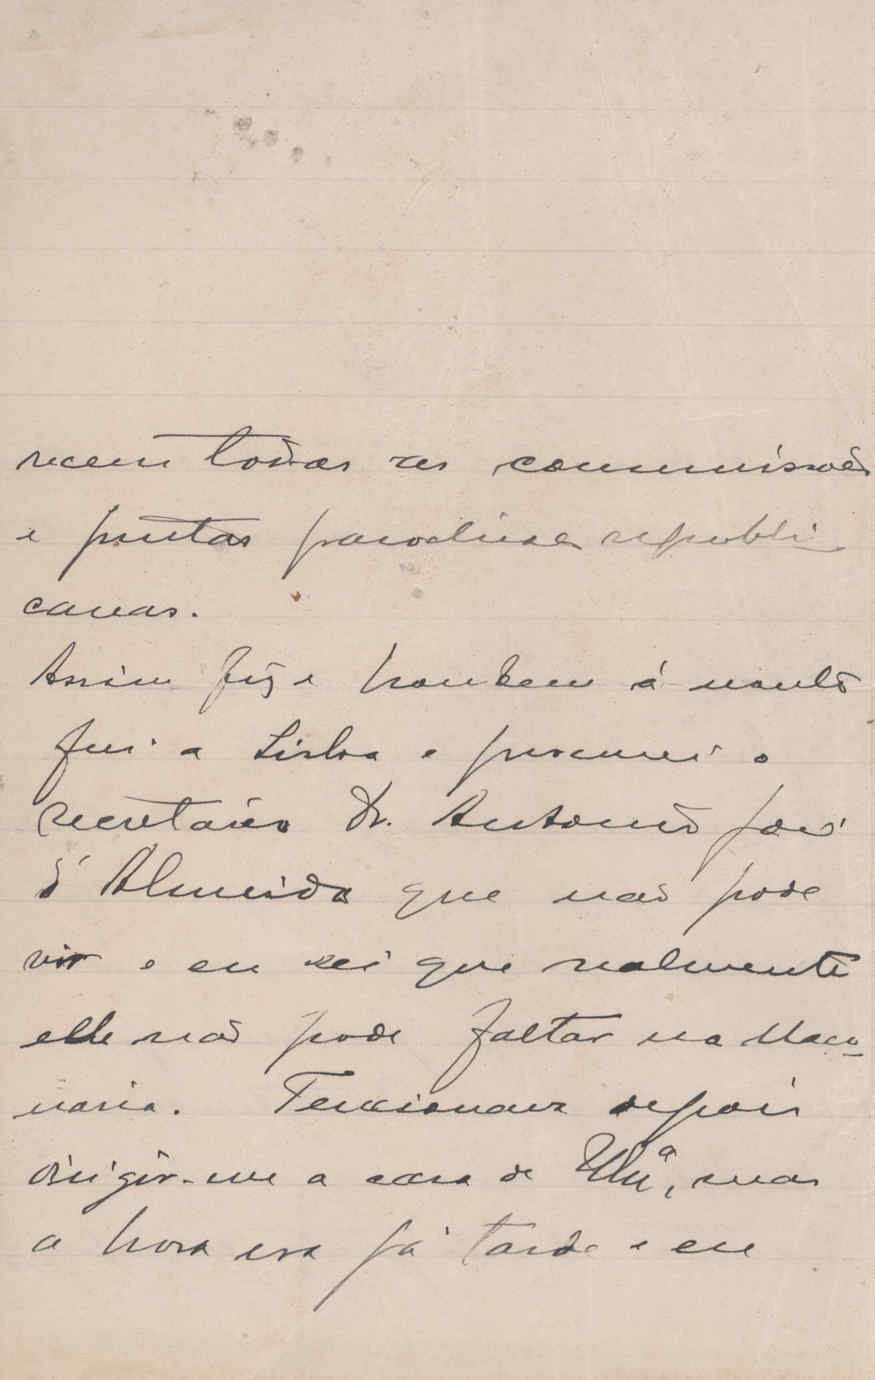 recem todas as commissões
e juntas parochiaes republi
canas.
Assim fiz e hontem á noute
fui a Lisboa e procurei o
secretario Dr. Antonio José
d'Almeida que não pode
vir e eu sei que realmente
elle não pode faltar na Maço
naria. Tencionava depois
dirigir-me a casa de V. Exª, mas
a hora era já tarde e eu